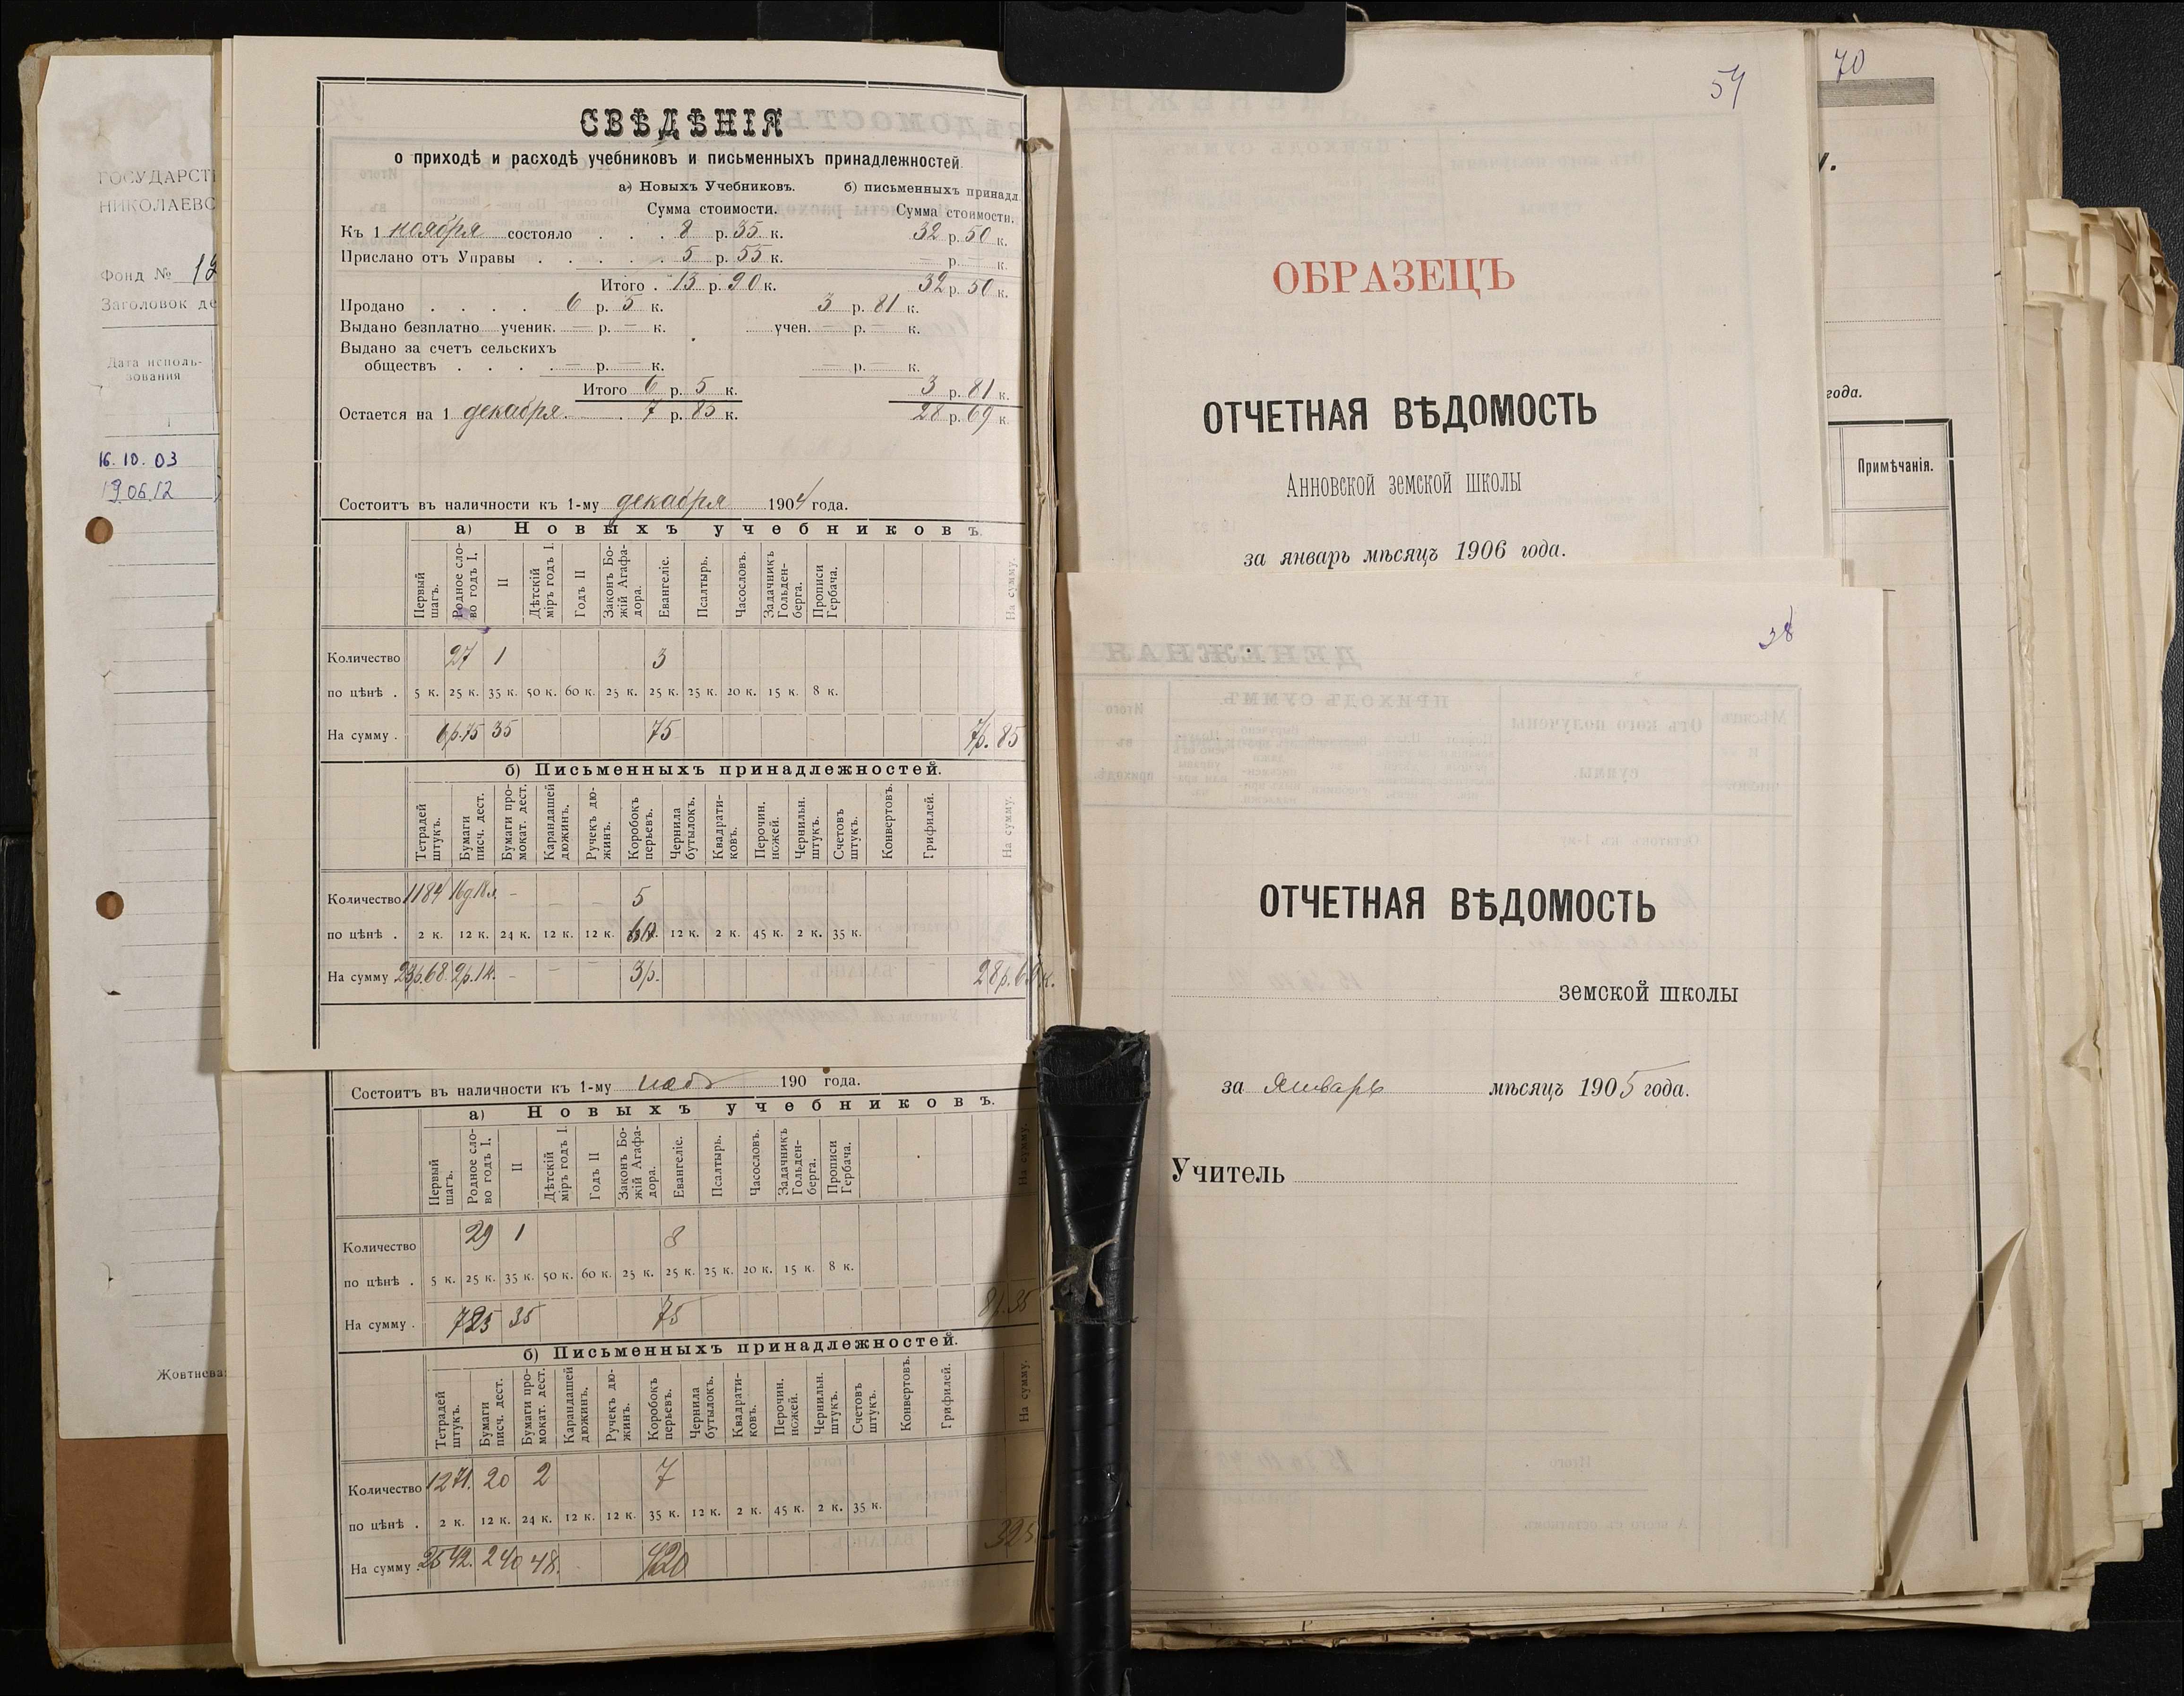 ГОСУДАРСТ
НИКОЛАЕВС
Фонд № 12
Заголовок де
Дата исполь-
зования
1
16.10.03
19.06.12
Жовтнева
СВѢДѢНІЯ
о приходѣ и расходѣ учебниковъ и письменныхъ принадлежностей.
а) Новыхъ Учебниковъ. б) письменныхъ принадл.
Сумма стоимости. Сумма стоимости.
Къ 1 ноября состояло . . . 8 р. 35 к. 32 р. 50 к.
Прислано отъ Управы . . . . . 5 р. 55 к. — р. — к.
Итого . 13 р. 90 к. 32 р. 50 к.
Продано . . . . 6 р. 5 к. 3 р. 81 к.
Выдано безплатно ученик. — р. — к. учен. — р. — к.
Выдано за счетъ сельскихъ
обществъ . . . . — р. — к. — р. — к.
Итого 6 р. 5 к. 3 р. 81 к.
Остается на 1 декабря. . 7 р. 85 к. 28 р. 69 к.
Состоитъ въ наличности къ 1-му декабря 1904 года.
а) Новыхъ учебниковъ.
Первый шагъ. Родное сло-во годъ I. II Дѣтскій міръ годъ I. Годъ II Законъ Бо-жій Агафа-дора. Евангеліе. Псалтырь. Часословъ. Задачникъ Гольден-берга. Прописи Гербача. На сумму.
Количество 27 1 3
по цѣнѣ . 5 к. 25 к. 35 к. 50 к. 60 к. 25 к. 25 к. 25 к. 20 к. 15 к. 8 к.
На сумму . 6р.75 35 75 7р. 85
б) Письменныхъ принадлежностей.
Тетрадей штукъ. Бумаги писч. дест. Бумаги про-мокат. дест. Карандашей дюжинъ. Ручекъ дю-жинъ. Коробокъ перьевъ. Чернила бутылокъ. Квадрати-ковъ. Перочин. ножей. Чернильн. штукъ. Счетовъ штукъ. Конвертовъ. Грифилей. На сумму.
Количество 1184 16д.18л. - - - 5
по цѣнѣ . 2 к. 12 к. 24 к. 12 к. 12 к. 60 к. 12 к. 2 к. 45 к. 2 к. 35 к.
На сумму 23р.68. 2р.1к. - - - 3р. 28р.69к.
Состоитъ въ наличности къ 1-му нояб 190 года.
а) Новыхъ учебниковъ.
Первый шагъ. Родное сло-во годъ I. II Дѣтскій міръ годъ I. Годъ II Законъ Бо-жій Агафа-дора. Евангеліе. Псалтырь. Часословъ. Задачникъ Гольден-берга. Прописи Гербача. На сумму.
Количество 29 1 3
по цѣнѣ . 5 к. 25 к. 35 к. 50 к. 60 к. 25 к. 25 к. 25 к. 20 к. 15 к. 8 к.
На сумму . 725 35 75 8р. 35
б) Письменныхъ принадлежностей.
Тетрадей штукъ. Бумаги писч. дест. Бумаги про-мокат. дест. Карандашей дюжинъ. Ручекъ дю-жинъ. Коробокъ перьевъ. Чернила бутылокъ. Квадрати-ковъ. Перочин. ножей. Чернильн. штукъ. Счетовъ штукъ. Конвертовъ. Грифилей. На сумму.
Количество 1271. 20 2 7
по цѣнѣ . 2 к. 12 к. 24 к. 12 к. 12 к. 35 к. 12 к. 2 к. 45 к. 2 к. 35 к.
На сумму . 2542. 240 48. 420 325
57
ОБРАЗЕЦЪ
ОТЧЕТНАЯ ВѢДОМОСТЬ
Анновской земской школы
за январь мѣсяцъ 1906 года.
38
ОТЧЕТНАЯ ВѢДОМОСТЬ
земской школы
за Январь мѣсяцъ 1905 года.
Учитель
70
года.
Примѣчанія.